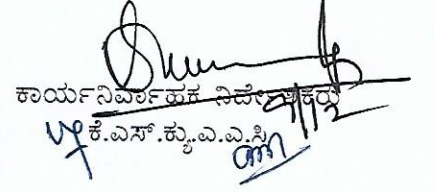 ಕಾರ್ಯನಿರ್ವಾಹಕ ನಿರ್ದೇಶಕರು
ಕೆ.ಎಸ್.ಕ್ಯು.ಎ.ಎ.ಸಿ